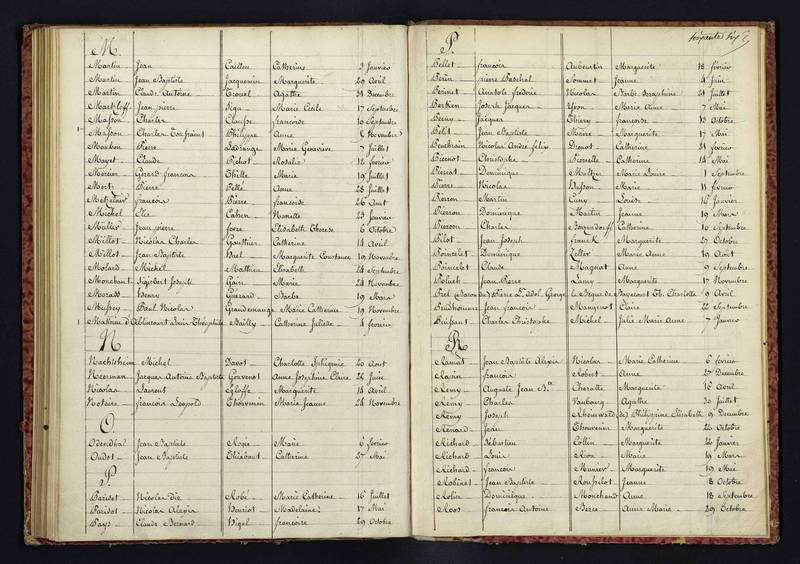 M
Martin Jean Cailloux Catherine 3 Janvier
Martin Jean Baptiste Jacquemin Marguerite 29 Avril
Martin Claude Antoine Trouel Agathe 31 Decembre
Martzloff Jean pierre Sigu Marie Cecile 17 Septembre
Masson Charles Clausse francoise 10 Septembre
Masson Charles Toussaint Philippe Anne 8 Novembre
Pierre Ladrange Marie Geneviève 7 Juillet
Mayet Claude Pichot Rosalie 12 fevrier
Mercier Gérard francois Thille Marie 19 Juillet
Metz Pierre Pellé Anne 28 Juillet
francois Pierre francoise 26 Aout
Michel Cahen Nanette 23 Janvier
Miller Jean pierre fevre Elisabeth Therese 6 Octobre
Millot Nicolas Charles Gauthier Catherine 14 Avril
Millot Jean Baptiste Noel Marguerite Constance 19 Novembre
Molard Michel Mathieu Elisabeth 24 Septembre
Monchant Sigisbert Joseph Marie 24 Novembre
Henry Guérard Barbe 19 Mars
Paul Nicolas Grandemange Marie Catherine 19 Novembre
d'Ablincourt Louis Théophile Bailly Catherine Juliette 4 fevrier
N
Nachtsheim Michel Davot Charlotte Iphigénie 20 Aout
Néerman Jacques Antoine Baptiste Gouvenot Anne Josephine Claire 26 Juin
Nicolas Laurent Leloffe Marguerite 14 Avril
francois Léopold Thouvenin Marie Jeanne 24 Novembre
O
Jean Baptiste Marie 6 fevrier
Oudot Jean Baptiste Thiébaut Catherine 27 Mai
P
Parisot Nicolas Die Robé Marie Catherine 16 Juillet
Parisot Nicolas Alexis Henriot Madelaine 17 Mai
Pays Claude Bernard Vigel francoise 29 Octobre
soixante six
P.
Pellet francois Aubertin Marguerite 18 fevrier
Perin pierre Paschal Pommet Jeanne 4 Juin
Perinet Anatole frederic Nicolas Barbe Seraphine 21 Juillet
Joseph Jacques Yvon Marie Anne 7 Mai
Jacques Thiery francoise 13 Octobre
Petit Jean Baptiste Pierre Marguerite 17 Mai
Nicolas André felix Drouot Catherine 21 fevrier
Christophe Pierrelle Catherine 14 Mai
Pierrat Dominique Marie Louise 11 Septembre
Pierre Nicolas Husson Marie 11 fevrier
Pierron Martin Cuny Louise 12 Janvier
Pierron Dominique Martin Jeanne 19 Mars
Pierson Charles Catherine 10 Septembre
Pilot Jean Joseph franck Marguerite 29 Octobre
Poincelet Dominique Zeller Marie Anne 19 Aout
Poincelet Claude Magnat Anne 9 Septembre
Jean Pierre Lamy Marguerite 17 Novembre
Pierre L. Adol. George Le Begue de Bayecourt Th. Charlotte 9 Avril
Prudhomme Jean francois Mangenot Claire 22 Septembre
Puissant Charles Christophe Michel Julie Marie Anne 7 Janvier
R
Jean Baptiste Alexis Nicolas Marie Catherine 6 fevrier
francois Robert Anne 27 Decembre
Remy Auguste Jean Bte Charotte Marguerite 16 Avril
Remy Charles Vaubourg Agathe 30 Juillet
Remy Joseph Philippine Elisabeth 9 Decembre
Renard Jean Thouvenin Marguerite 22 Octobre
Richard Sébastien Collin Marguerite 22 Janvier
Richard Louis Marie 19 Mars
Richard francois Munier Marguerite 19 Mai
Robinet Jean Baptiste Jeanne 8 Octobre
Rolin Dominique Monchand Anne 18 Septembre
Roos francois Antoine Anne Marie 29 Octobre